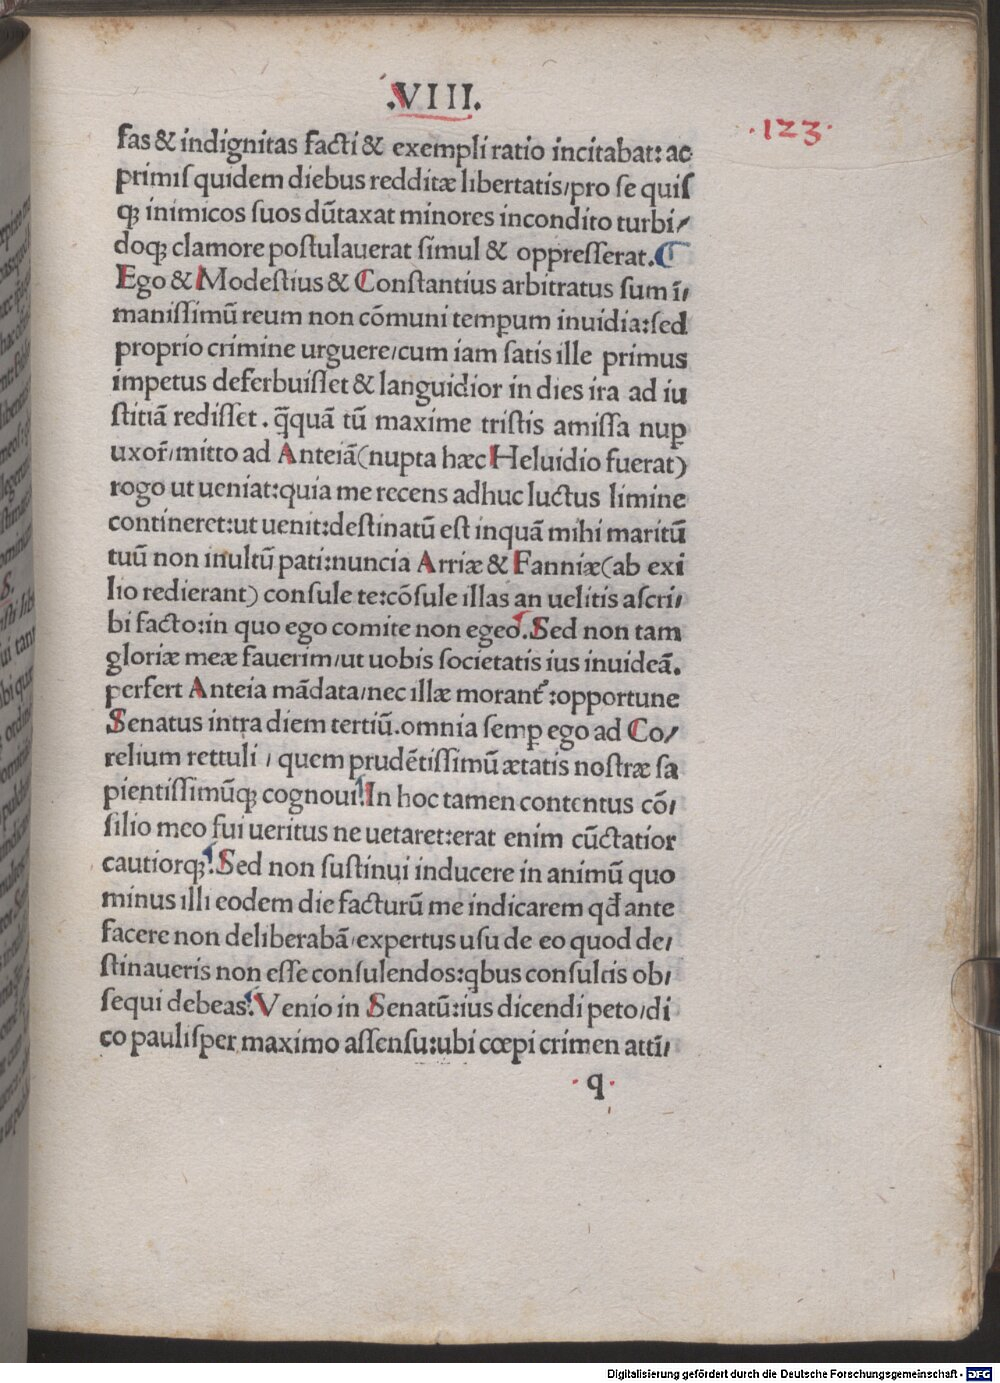 .VIIII.
·123·
fas & indignitas facti & exempli ratio incitabat: ac
primiſ quidem diebus redditæ libertatis/pro se quiſ
qꝫ inimicos ſuos dũtaxat minores incondito turbi/
doqꝫ clamore poſtulauerat ſimul & oppreſſerat. ⸿
Ego & Modeſtius & Conſtantius arbitratus ſum ĩ/
maniſſimũ reum non cõmuni temꝑum inuidia:ſed
proprio crimine urguere/cum iam ſatis ille primus
impetus deferbuiſſet & languidior in dies ira ad iu
ſtitiã rediſſet. q̃quã tũ maxime triſtis amiſſa nuꝑ
uxor̃/mitto ad Anteiã(nupta hæc Heluidio fuerat)
rogo ut ueniat:quia me recens adhuc luctus limine
contineret:ut uenit:deſtinatũ eſt inquã mihi maritũ
tuũ non inultũ pati:nuncia Arriæ & Fanniæ(ab exi
lio redierant) conſule te:cõſule illas an uelitis aſcri/
bi facto:in quo ego comite non egeo. Sed non tam
gloriæ meæ fauerim/ut uobis ſocietatis ius inuideã.
perfert Anteia mãdata/nec illæ morant᷑:opportune
Senatus intra diem tertiũ.omnia ſemꝑ ego ad Co/
relium rettuli / quem prudẽtiſſimũ ætatis noſtræ ſa
pientiſſimũqꝫ cognoui. In hoc tamen contentus cõ/
ſilio meo fui ueritus ne uetaret:erat enim cũctatior
cautiorqꝫ. Sed non ſuſtinui inducere in animũ quo
minus illi eodem die facturũ me indicarem qđ ante
facere non deliberabã/expertus uſu de eo quod de/
ſtinaueris non eſſe conſulendos:qbus conſultis ob/
ſequi debeas. Venio in Senatũ:ius dicendi peto/di
co pauliſper maximo aſſenſu:ubi cœpi crimen attĩ/
·q·
Digitalisierung gefördert durch die Deutsche Forschungsgemeinschaft - DFG